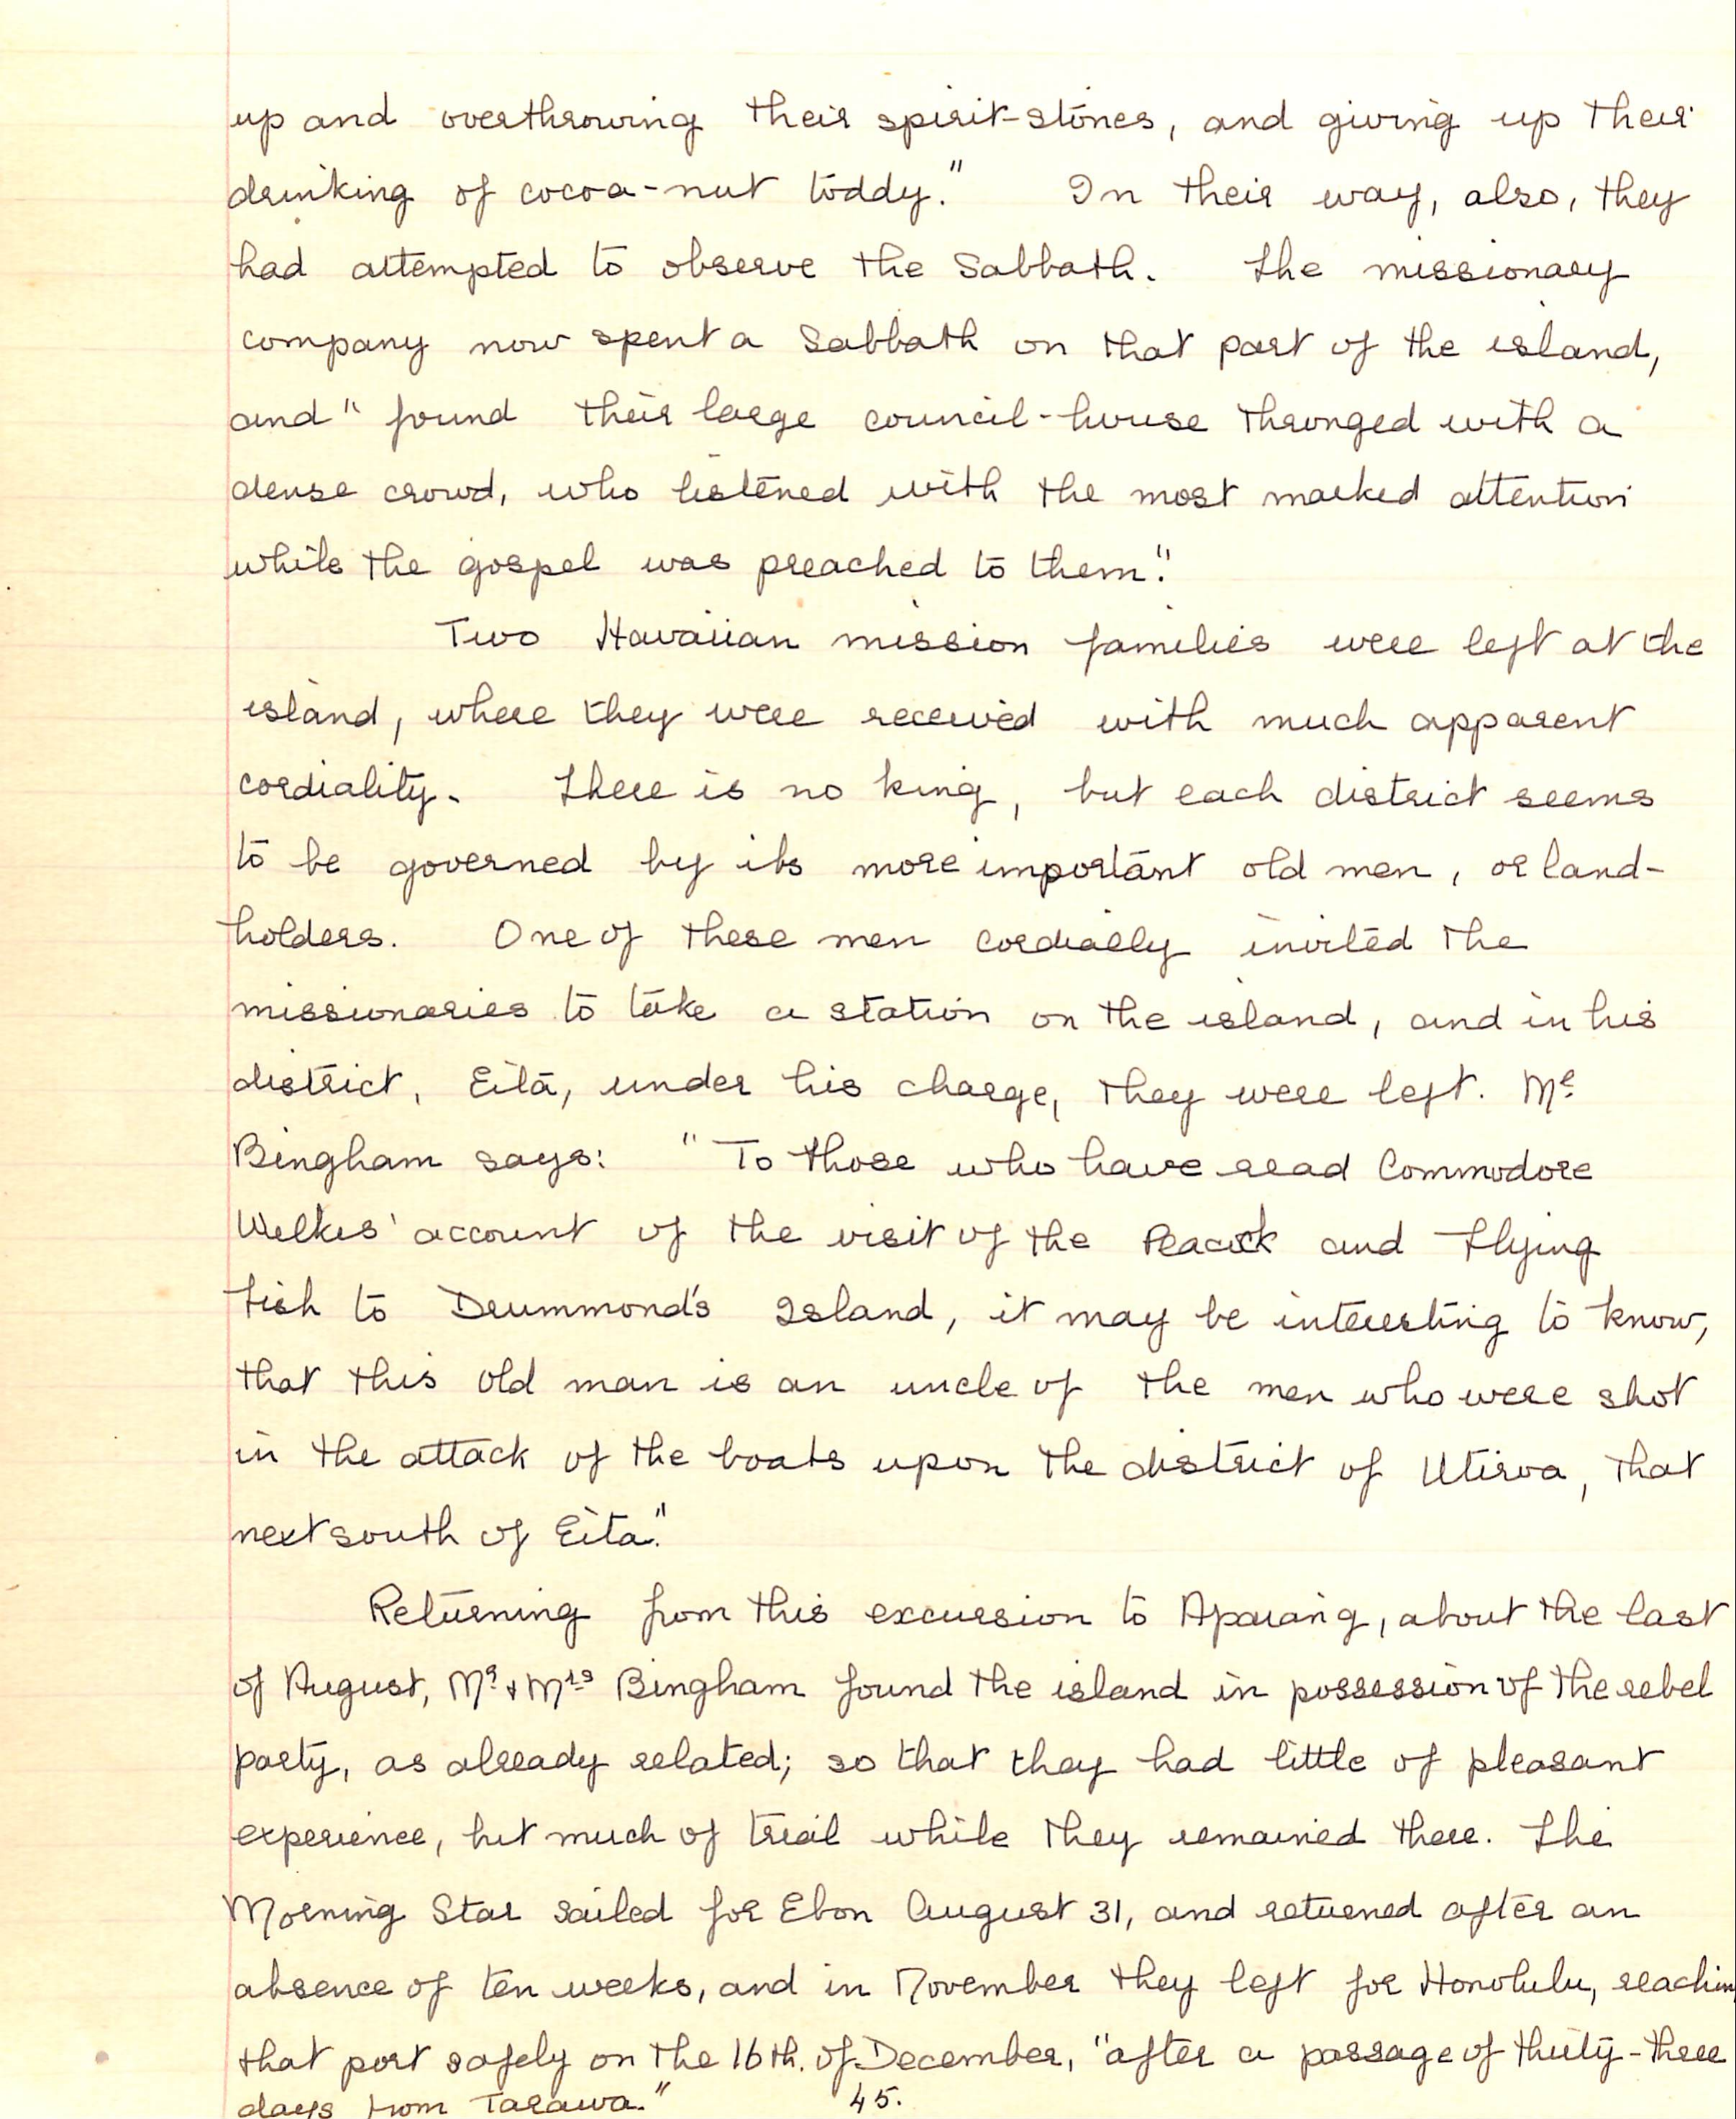 up and overthrowing their spirit-stones, and giving up their
drinking of cocoa-nut toddy." In their way, also, they
had attempted to observe the Sabbath. The missionary
company now spent a Sabbath on that part of the island,
and "found their large council-house thronged with a
dense crowd, who listened with the most marked attention
while the gospel was preached to them."
Two Hawaiian mission families were left at the
island, where they were received with much apparent
cordiality. There is no king, but each district seems
to be governed by its more important old men, or land-
holders. One of these men cordially invited the
missionaries to take a station on the island, and in his
district, Eita, under his charge, they were left. Mr
Bingham says: "To those who have read Commodore
Wilkes' account of the visit of the Peacock and Flying
Fish to Drummond's Island, it may be interesting to know,
that this old man is an uncle of the men who were shot
in the attack of the boats upon the district of Utiroa, that
next south of Eita."
Returning from this excursion to Apaiang, about the last
of August, Mr & Mrs Bingham found the island in possession of the rebel
party, as already related; so that they had little of pleasant
experience, but much of trial while they remained there. The
Morning Star sailed for Ebon August 31, and returned after an
absence of ten weeks, and in November they left for Honolulu, reachin
that port safely on the 16th. of December, "after a passage of thirty-three
days from Tarawa."
45.